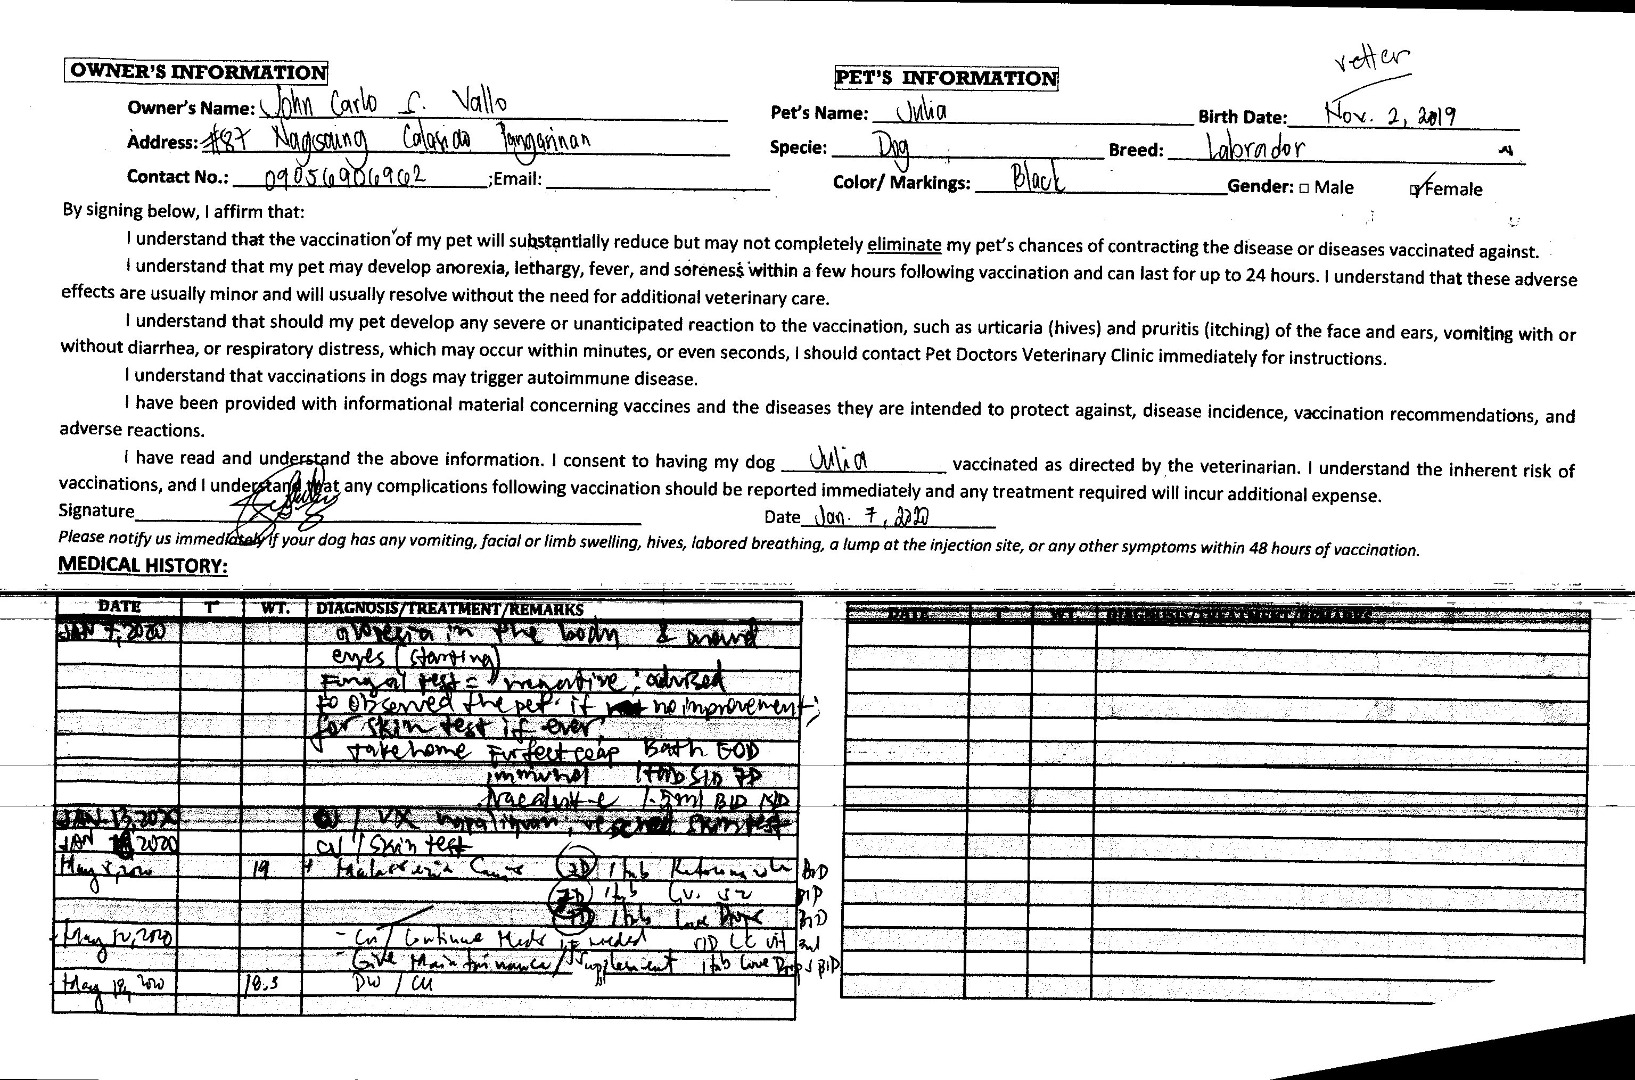 vetter
OWNER'S INFORMATION
PET'S INFORMATION
Owner's Name: John Carlo S. Vallo
Pet's Name: Julia
Birth Date: Nov. 2, 2019
Address: #87 Nagsaing Calasiao Pangasinan
Specie: Dog
Breed: Labrador
Contact No.: 09056906962 ;Email:
Color/ Markings: Black
Gender: □ Male ☑ Female
By signing below, I affirm that:
I understand that the vaccination of my pet will substantially reduce but may not completely eliminate my pet's chances of contracting the disease or diseases vaccinated against.
I understand that my pet may develop anorexia, lethargy, fever, and soreness within a few hours following vaccination and can last for up to 24 hours. I understand that these adverse
effects are usually minor and will usually resolve without the need for additional veterinary care.
I understand that should my pet develop any severe or unanticipated reaction to the vaccination, such as urticaria (hives) and pruritis (itching) of the face and ears, vomiting with or
without diarrhea, or respiratory distress, which may occur within minutes, or even seconds, I should contact Pet Doctors Veterinary Clinic immediately for instructions.
I understand that vaccinations in dogs may trigger autoimmune disease.
I have been provided with informational material concerning vaccines and the diseases they are intended to protect against, disease incidence, vaccination recommendations, and
adverse reactions.
I have read and understand the above information. I consent to having my dog Julia vaccinated as directed by the veterinarian. I understand the inherent risk of
vaccinations, and I understand that any complications following vaccination should be reported immediately and any treatment required will incur additional expense.
Signature
Date Jan. 7, 2020
Please notify us immediately if your dog has any vomiting, facial or limb swelling, hives, labored breathing, a lump at the injection site, or any other symptoms within 48 hours of vaccination.
MEDICAL HISTORY:
DATE T° WT. DIAGNOSIS/TREATMENT/REMARKS
DATE T° WT. DIAGNOSIS/TREATMENT/REMARKS
JAN 7, 2020 alopecia in the body & around
eyes (starting)
Fungal test = negative; advised
to observed the pet. if no improvement;
for skin test if ever.
take home Furfect soap Bath EOD
immunol 1 tab SID 7D
1.5ml BID
JAN. 13, 2020 skin test
JAN 2020 cu / skin test
May 8, 2020 19 1 tab BID
1 tab BID
1 tab Love Drops BID
May 2020 - Cu / Continue Meds if needed
- Give Maintenance / Supplement 1 tab Love Drops BID
May 18, 2020 18.3 DW / CU